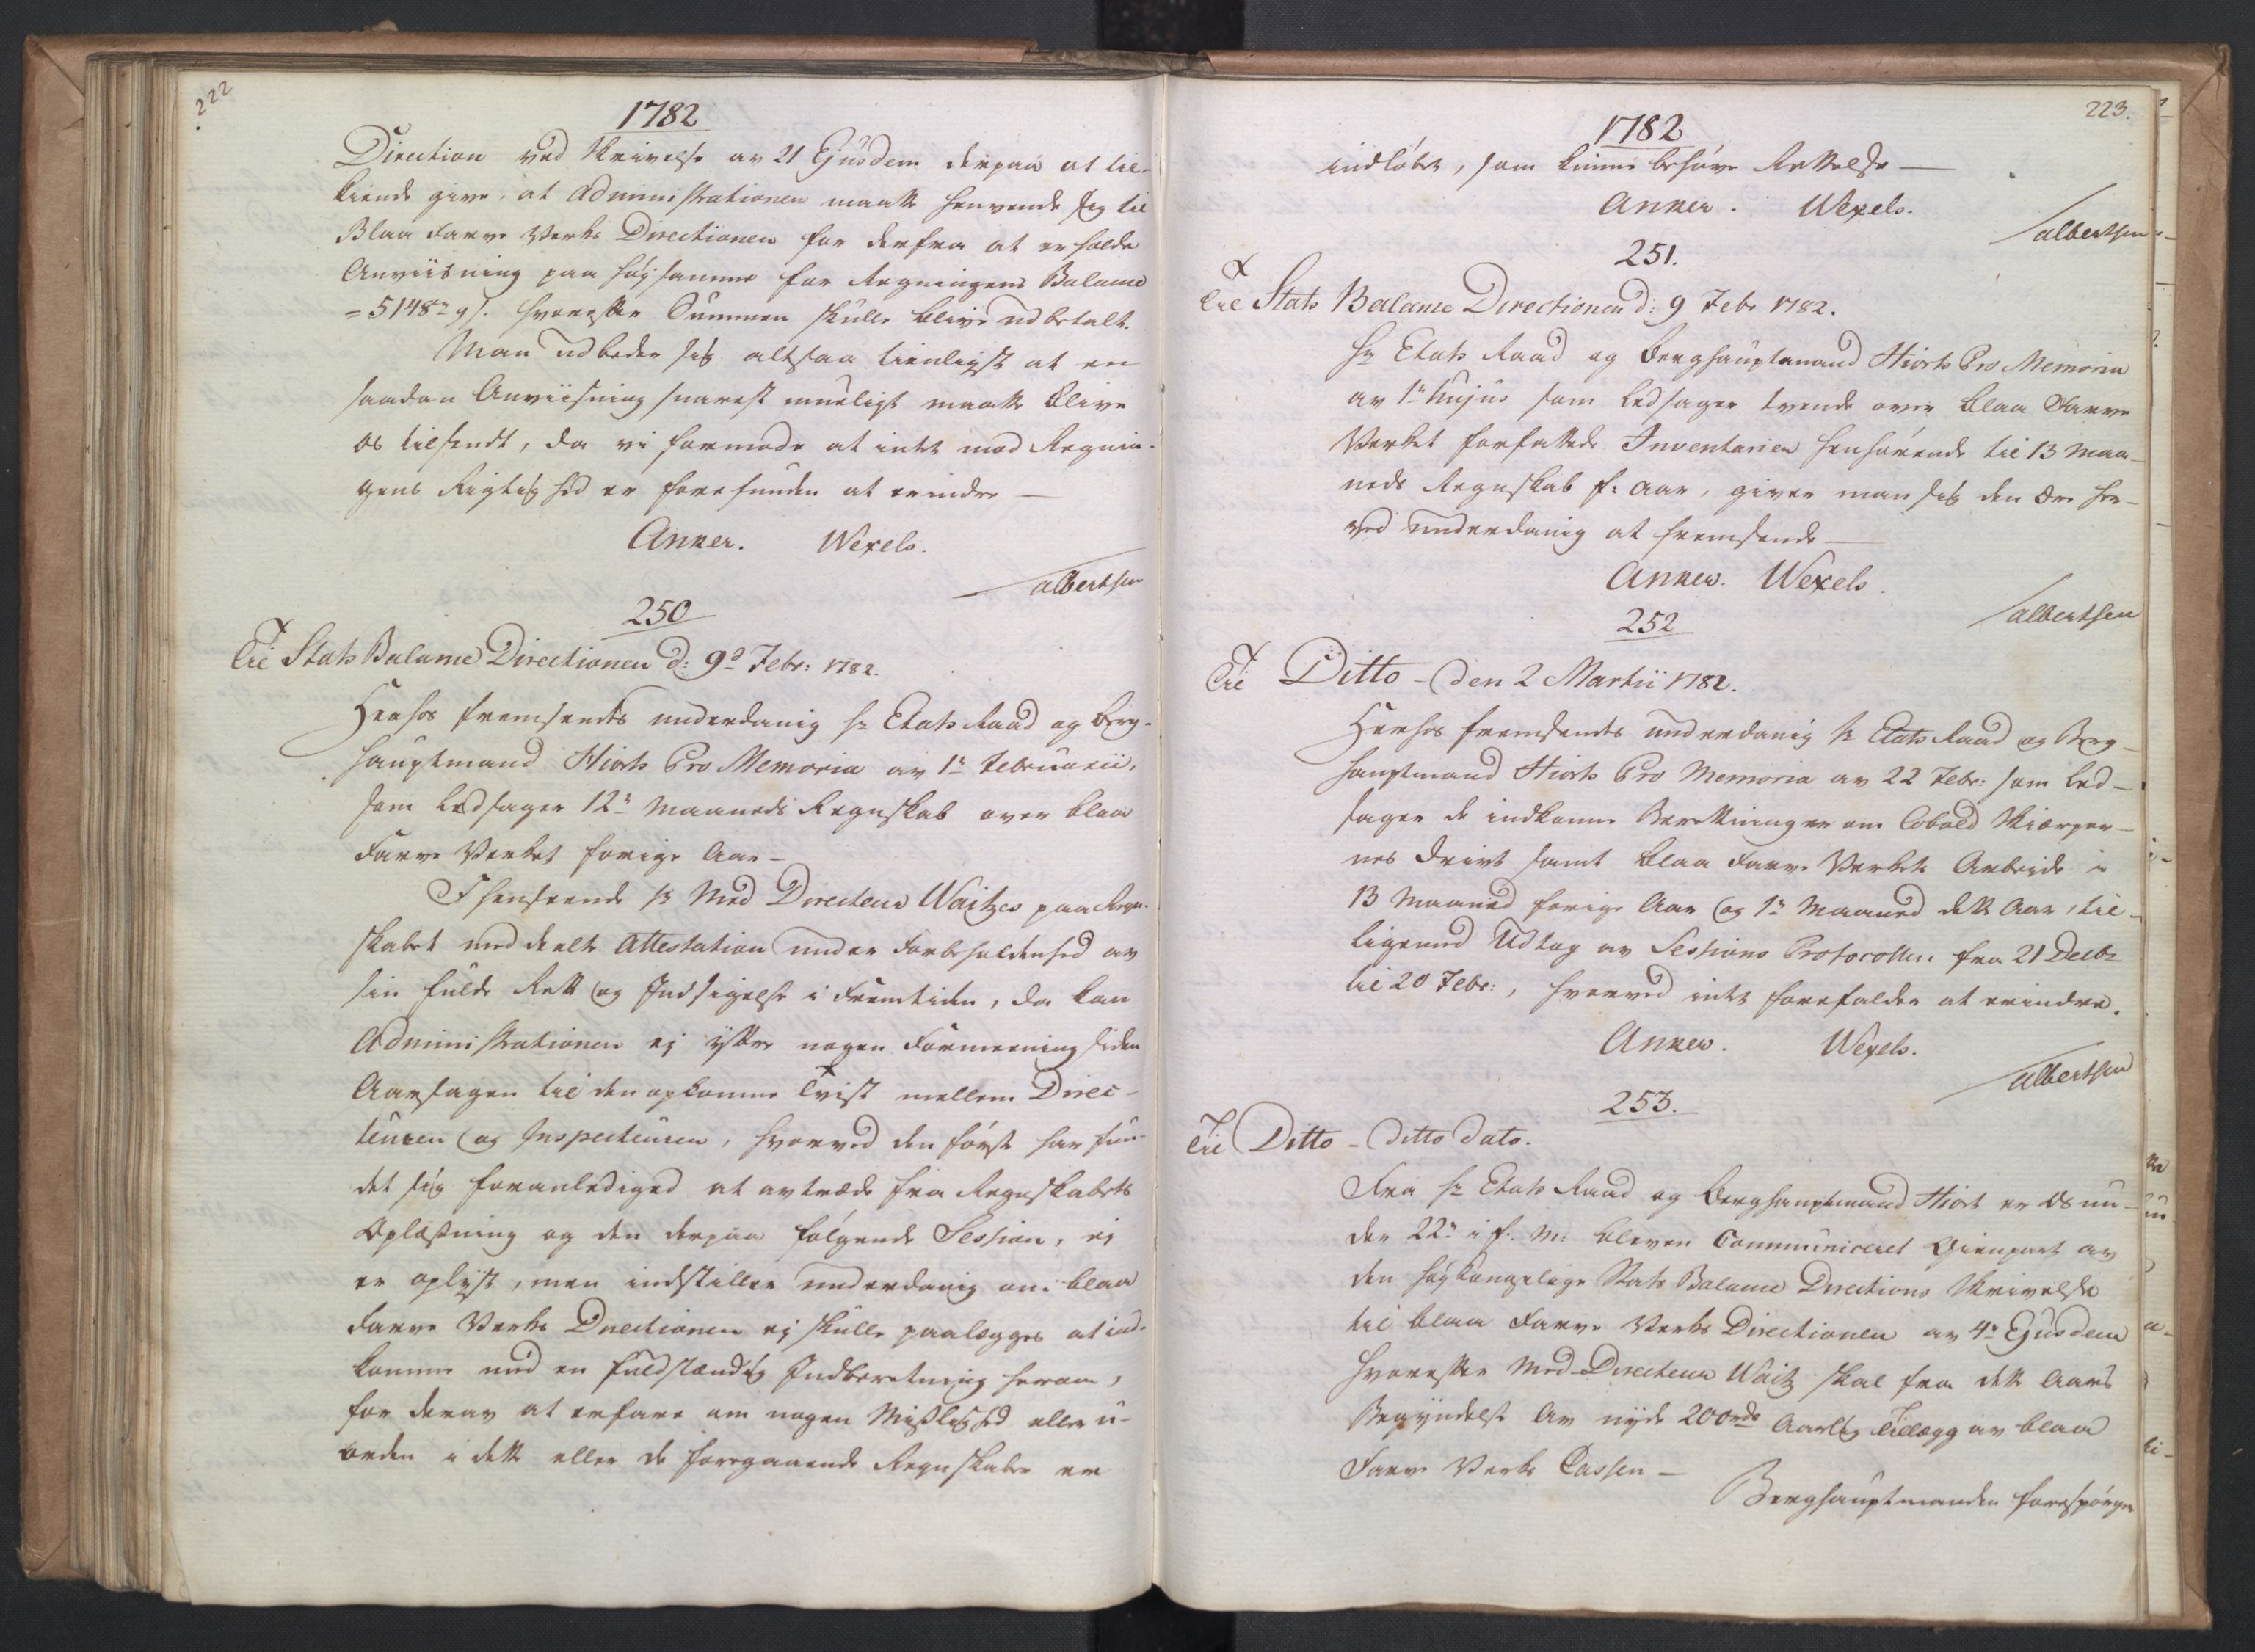 222
1782
Direction ved Skrivelse av 21 Ejusdem derpaa at til-
kiende give, at Administrationen maatte henvende sig til
Blaa Farve Verks Directionen for derfra at erholde
Anviisning paa høysamme for Regningens Balance
= 5148 hvorefter Summen skulle blive udbetalt.
Man udbeder sig altsaa tienligst at en
saadan Anviisning snarest mueligt maatte blive
os tilsendt, da vi formode at intet mod Regnin-
gens Rigtighed er forefunden at erindre —
Anker. Wexels.
Albertsen
250
Til Stats Balance Directionen d: 9d Febr: 1782.
Herhos fremsendes underdanig Hr Etats Raad og Berg-
hauptmand Hiorts Pro Memoria av 1r Februarii,
som ledsager 12r Maaneds Regnskab over Blaa
Farve Verket forige Aar —
I henseende Hr Med Directeur Waitzes paa Regn-
skabet meddeelte Attestation under Forbeholdenhed av
sin fulde Rett og Indsigelse i Fremtiden, da kan
Administrationen ej yttre nogen Formeening siden
Aarsagen til den opkomne Tvist mellem Direc-
teuren og Inspecteuren, hvorved den første har fun-
det sig foranlediged at avtræde fra Regnskabets
Oplæsning og den derpaa følgende Session, ej
er oplyst, men indstiller underdanig om Blaa
Farve Verks Directionen ej skulle paalægges at ind-
komme med en fuldstændig Indberetning herom,
for derav at erfare om nogen Misslighed eller u-
orden i dette eller de foregaaende Regnskaber er
223.
1782
indløbet, som kunne behøve Rettelse —
Anker. Wexels.
Albertsen
251.
Til Stats Balance Directionen d: 9 Febr 1782.
Hr Etats Raad og Berghauptmand Hiorts Pro Memoria
av 1r hujus som ledsager tvende over Blaa Farve
Verket forfattede Inventarier henhørende til 13 Maa-
neds Regnskab f: Aar, giver man sig den Ære her-
ved underdanig at fremsende —
Anker. Wexels.
Albertsen
252
Til Ditto – den 2 Martii 1782.
Herhos fremsendes underdanig Hr Etats Raad og Berg-
hauptmand Hiorts Pro Memoria av 22 Febr: som led-
sager de indkomne Beretninger om Cobold Skiærper-
nes Drivt samt Blaa Farve Verkets Arbeide i
13 Maaned forige Aar og 1r Maaned dette Aar, til-
ligemed Udtog av Sessions Protocollen fra 21 Decbr
til 20 Febr:, hvorved intet forefalder at erindre.
Anker. Wexels.
Albertsen
253.
Til Ditto – ditto dato.
Fra Hr Etats Raad og Berghauptmand Hiort er os un-
der 22r i f: M: bleven Communiceret Gienpart av
den høykongelige Stats Balance Directions Skrivelse
til Blaa Farve Verks Directionen av 4r Ejusdem
hvorefter Med-Directeur Waitz skal fra dette Aars
Begyndelse av nyde 200rd Aarlig Tillægg av Blaa
Farve Verks Cassen —
Berghauptmanden forespørger